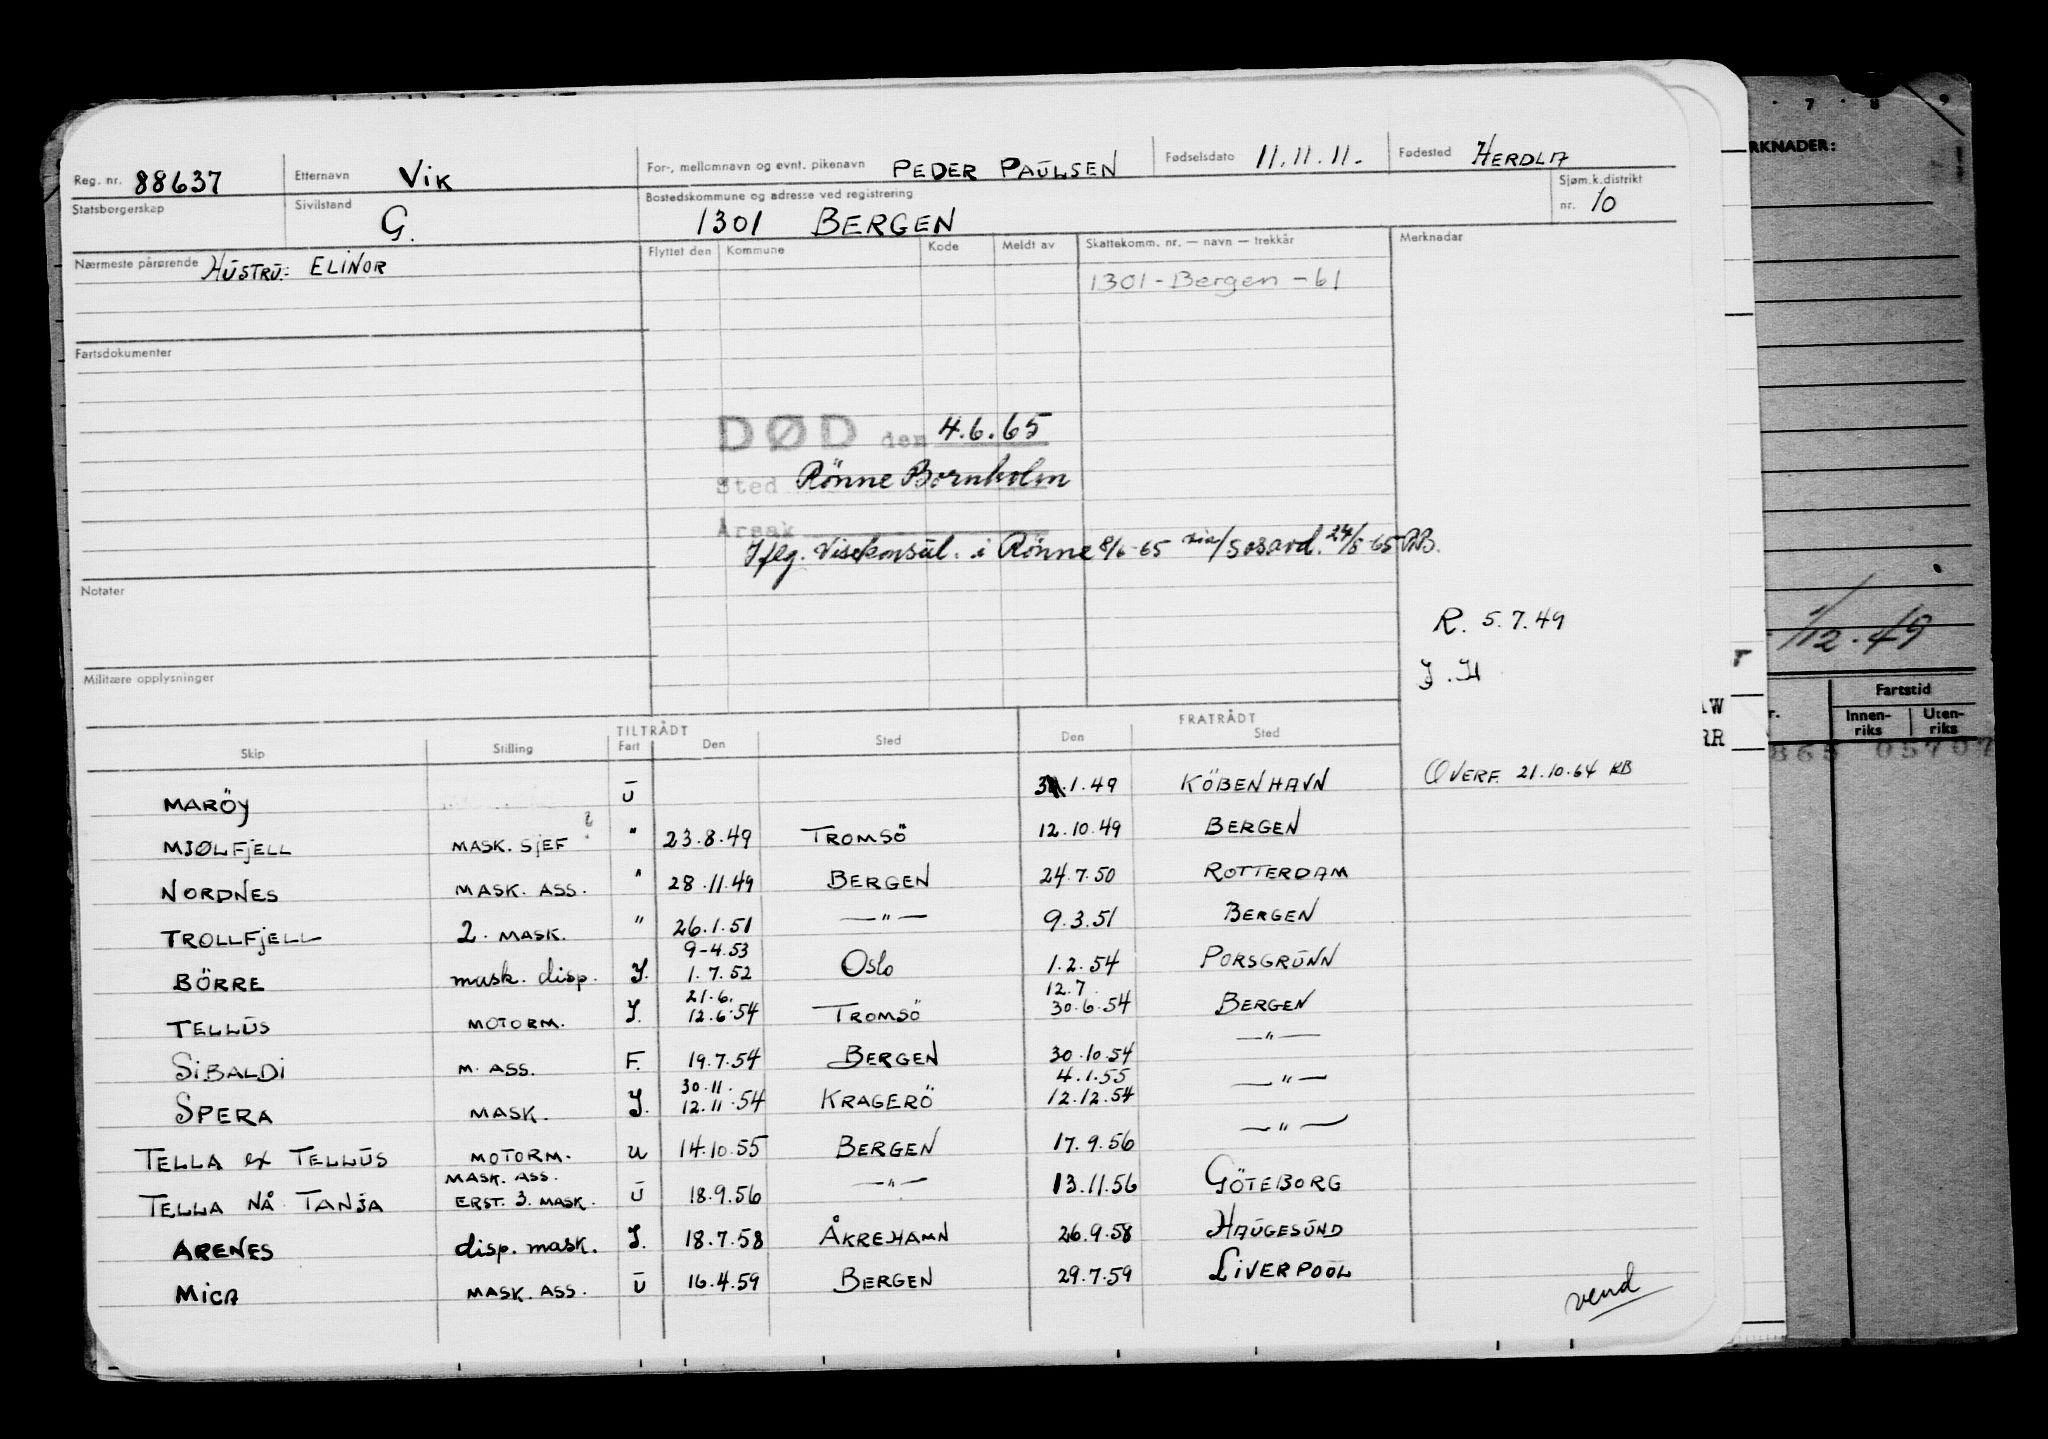 Reg. nr. 88637 Etternavn Vik For-, mellomnavn og evnt. pikenavn PEDER PAULSEN Fødselsdato 11.11.11. Fødested HERDLA
Statsborgerskap Sivilstand G. Bostedskommune og adresse ved registrering 1301 BERGEN Sjøm.k.distrikt nr. 10
Nærmeste pårørende HUSTRU: ELINOR Flyttet den Kommune Kode Meldt av Skattekomm. nr. — navn — trekkår Merknader
1301 - Bergen - 61
Fartsdokumenter
DØD den 4.6.65
Sted Rönne Bornholm
Årsak
Iflg. Visekonsul. i Rönne 8/6-65 via/sosavd. 24/8-65 RB.
Notater
R. 5.7.49
J.H
Militære opplysninger
TILTRÅDT FRATRÅDT
Skip Stilling Fart Den Sted Den Sted
MARÖY U .1.49 KÖBENHAVN OVERF. 21.10.64 KB
MJØLFJELL MASK. SJEF " 23.8.49 TROMSÖ 12.10.49 BERGEN
NORDNES MASK. ASS. " 28.11.49 BERGEN 24.7.50 ROTTERDAM
TROLLFJELL 2. MASK. " 26.1.51 —"— 9.3.51 BERGEN
9-4.53
BÖRRE mask. disp. I. 1.7.52 Oslo 1.2.54 PORSGRUNN
21.6. 12.7
TELLUS MOTORM. I. 12.6.54 TROMSÖ 30.6.54 BERGEN
SIBALDI M. ASS. F. 19.7.54 BERGEN 30.10.54 —"—
30.11. 4.1.55
SPERA MASK. I. 12.11.54 KRAGERÖ 12.12.54 —"—
TELLA ex TELLUS MOTORM. U 14.10.55 BERGEN 17.9.56 —"—
MASK. ASS.
TELLA NÅ TANJA ERST. 3. MASK. U 18.9.56 —"— 13.11.56 GÖTEBORG
ARENES disp. mask. I. 18.7.58 ÅKREHAMN 26.9.58 HAUGESUND
MICA MASK. ASS. U 16.4.59 BERGEN 29.7.59 LIVERPOOL
vend
7 8 9
RKNADER:
1/12.49
Fartstid
Innen-riks Uten-riks
865 05707